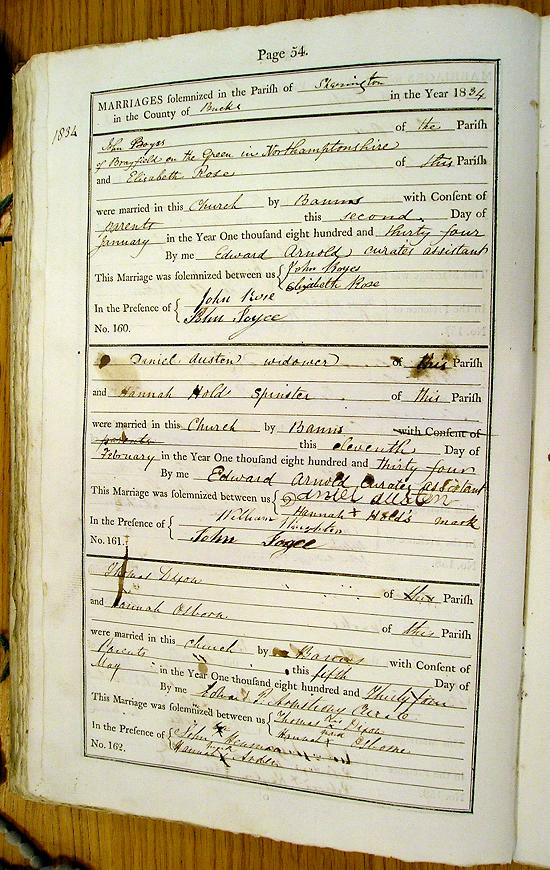 Page 54.
1834
MARRIAGES solemnized in the Parish of Sherington
in the County of Bucks in the Year 1834
John Boyes of the Parish
of Brayfield on the Green in Northamptonshire
and Elisabeth Rose of this Parish
were married in this Church by Banns with Consent of
Parents this second Day of
January in the Year One thousand eight hundred and thirty four
By me Edward Arnold curates assistant
This Marriage was solemnized between us John Boyes
Elizabeth Rose
In the Presence of John Rose
John Joyce
No. 160.
Daniel Auston widower of this Parish
and Hannah Hold Spinster of this Parish
were married in this Church by Banns with Consent of
parents this Eleventh Day of
February in the Year One thousand eight hundred and thirty four
By me Edward Arnold curates assistant
This Marriage was solemnized between us Daniel Auston
Hannah X Hold's mark
In the Presence of William
John Joyce
No. 161.
Thomas Dixon of this Parish
and Hannah Osborn of this Parish
were married in this Church by Banns with Consent of
Parents this fifth Day of
May in the Year One thousand eight hundred and Thirty four
By me
This Marriage was solemnized between us Thomas his Dixon
Hannah X Osborne
In the Presence of John
Hannah X
No. 162.